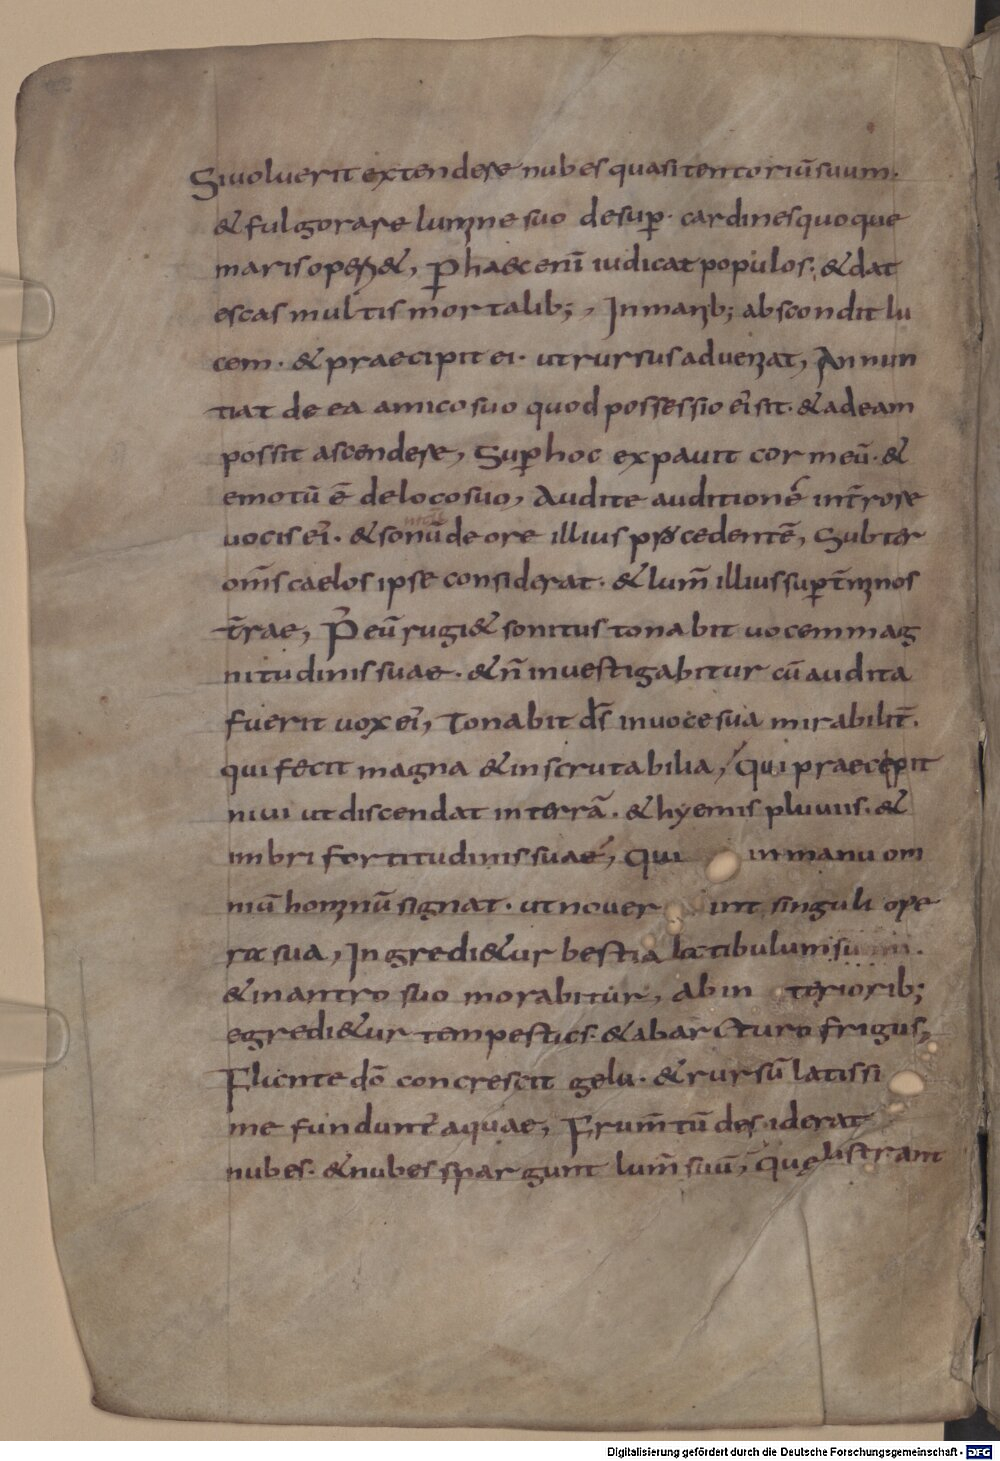 Si uoluerit extendere nubes quasi tentoriū suum.
& fulgorare lumine suo desup̄. cardines quoque
maris operi&, P̄ haec eni iudicat populos. & dat
escas multis mortalib; , In manib; abscondit lu
cem. & praecipit ei. ut rursus adueniat, Annun
tiat de ea amico suo quod possessio ei sit. & ad eam
possit ascendere, Sup̄ hoc expauit cor meū. &
emotū ē de loco suo, Audite auditionē in t̄rore
uocis ei. & sonū de ore illius procedentē, Subter
om̄s caelos ipse considerat. & lum̄ illius sup̄ t̄minos
t̄rae, P̄ eū rugi& sonitus tonabit uoce mag
nitudinis suae. & n̄ inuestigabitur cū audita
fuerit uox ei, Tonabit d̄s in uoce sua mirabilit̄.
qui fecit magna & inscrutabilia, Qui praecepit
niui ut discendat in terrā. & hyemis pluuiis. &
imbri fortitudinis suae, Qui in manu om
niū hominū signat. ut nouerint singuli ope
ra sua, Ingredi&ur bestia latibulum suum.
& in antro suo morabitur, Ab interiorib;
egredi&ur tempestas. & ab arcturo frigus,
Flante dō concrescit gelu. & rursū latissi
me fundunt̄ aquae, Frum̄tū desiderat
nubes. & nubes spargunt lum̄ suū, Quę lustrant
Digitalisierung gefördert durch die Deutsche Forschungsgemeinschaft - DFG